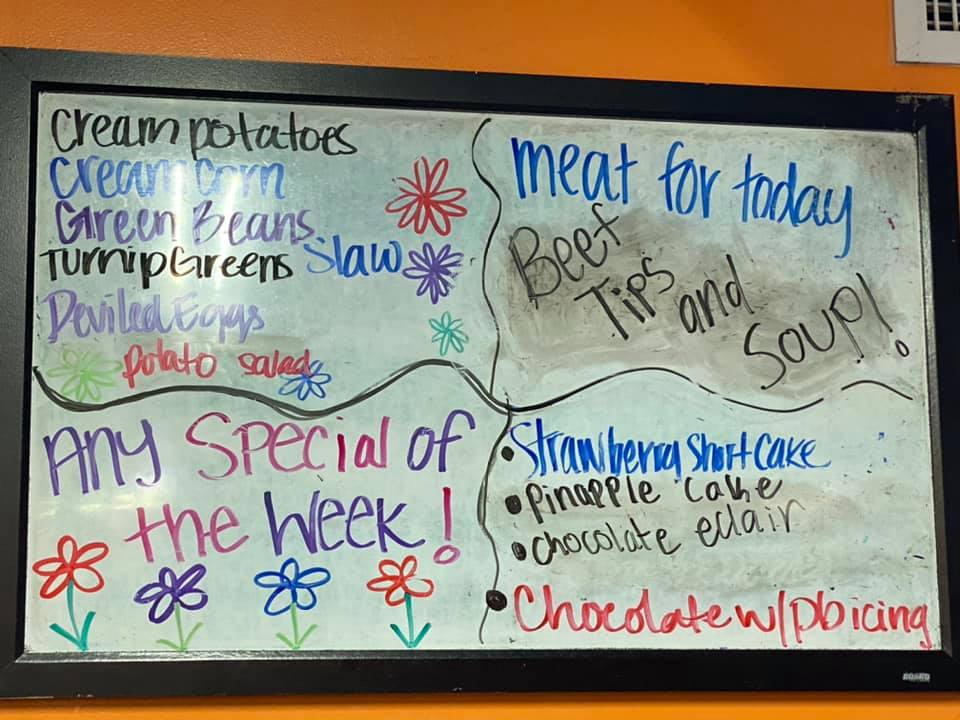 Cream potatoes
Cream Corn
Green Beans
Turnip Greens Slaw
Deviled Eggs
potato salad
meat for today
Beef
Tips and
Soup!
Any Special of
the Week!
• Strawberry Shortcake
• pinapple cake
• chocolate eclair
• Chocolate w/pb icing